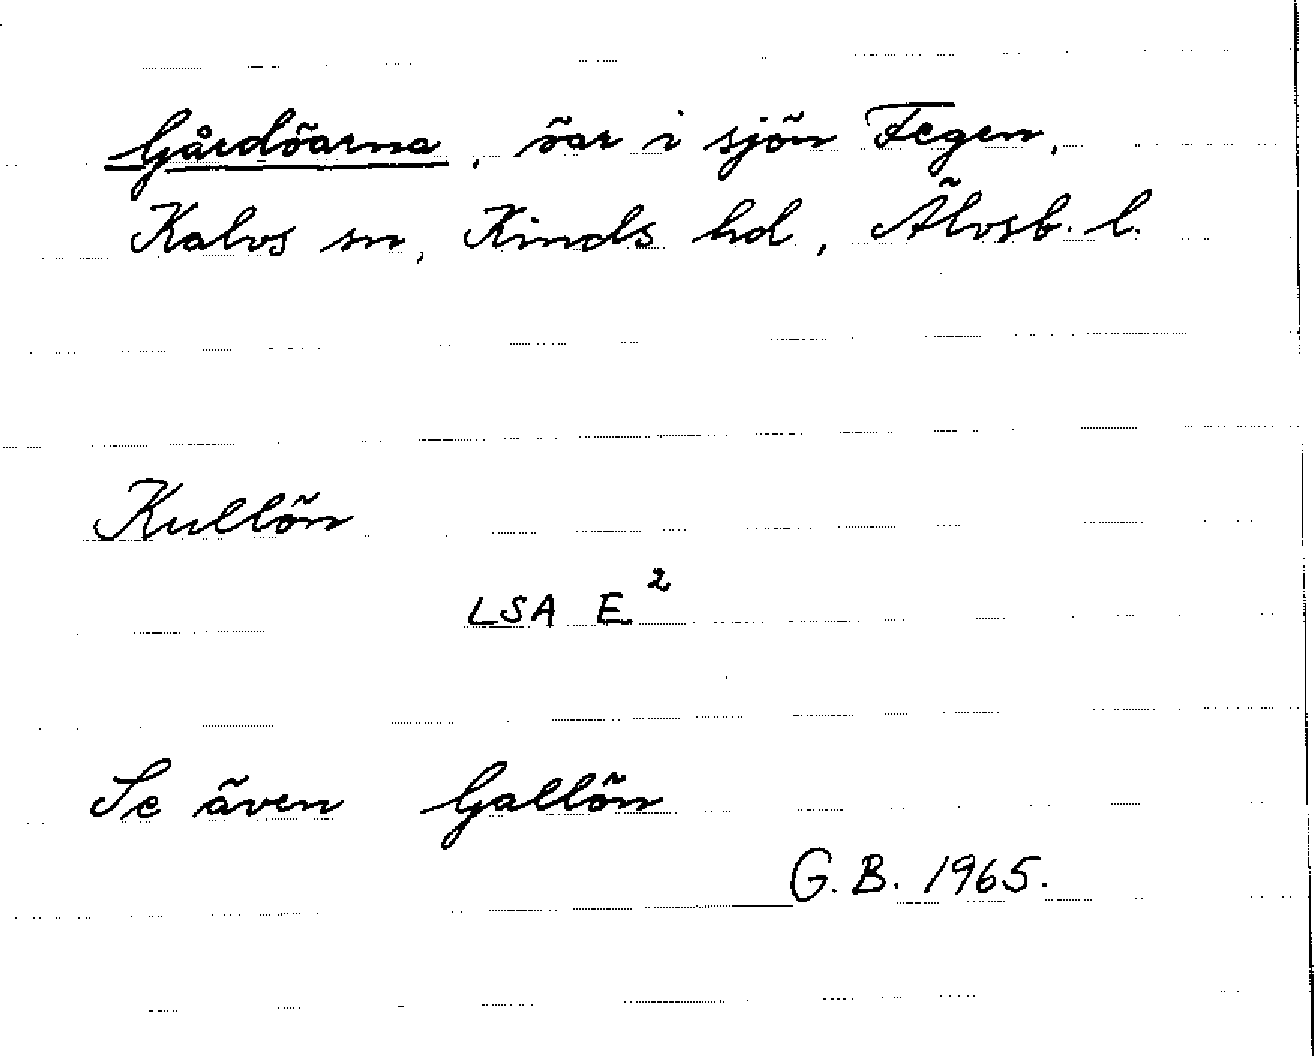 Gårdöarna, öar i sjön Fegen,
Kalvs sn, Kinds hd, Älvsb. l.
Kullön
LSA E²
Se även Gallön
G. B. 1965.